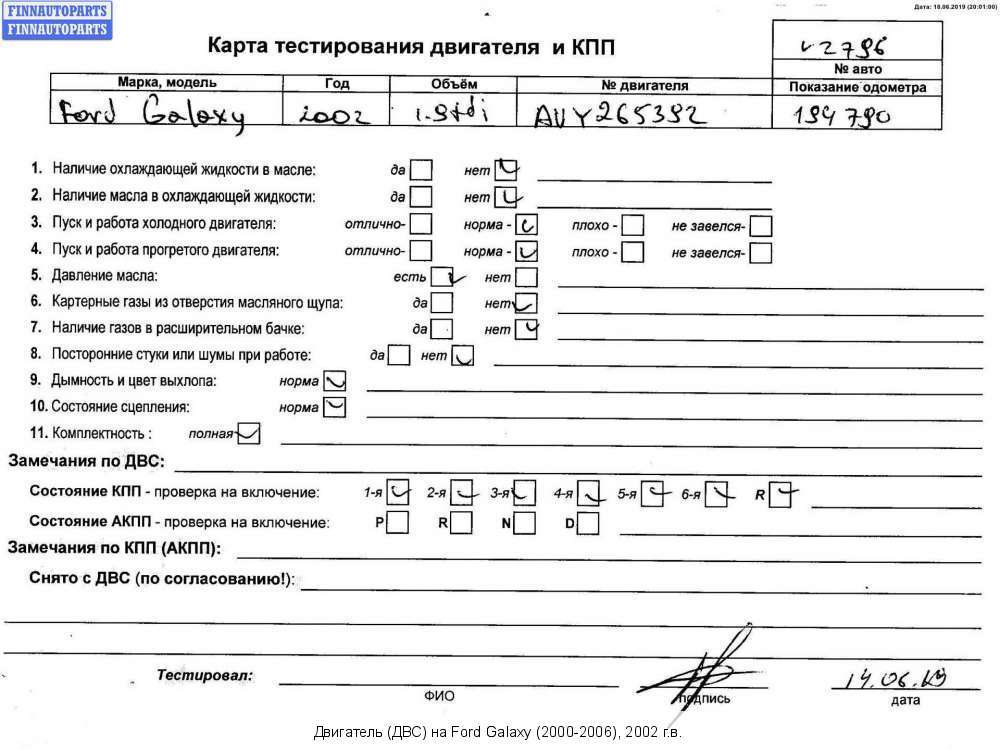 FINNAUTOPARTS
FINNAUTOPARTS
Дата: 18.06.2019 (20:01:00)
Карта тестирования двигателя и КПП
v2796
№ авто
Марка, модель Год Объём № двигателя Показание одометра
Ford Galaxy 2002 1.9tdi AUY265392 194790
1. Наличие охлаждающей жидкости в масле: да нет
2. Наличие масла в охлаждающей жидкости: да нет
3. Пуск и работа холодного двигателя: отлично- норма - плохо - не завелся-
4. Пуск и работа прогретого двигателя: отлично- норма - плохо - не завелся-
5. Давление масла: есть нет
6. Картерные газы из отверстия масляного щупа: да нет
7. Наличие газов в расширительном бачке: да нет
8. Посторонние стуки или шумы при работе: да нет
9. Дымность и цвет выхлопа: норма
10. Состояние сцепления: норма
11. Комплектность : полная
Замечания по ДВС:
Состояние КПП - проверка на включение: 1-я 2-я 3-я 4-я 5-я 6-я R
Состояние АКПП - проверка на включение: P R N D
Замечания по КПП (АКПП):
Снято с ДВС (по согласованию!):
Тестировал: 14.06.19
ФИО подпись дата
Двигатель (ДВС) на Ford Galaxy (2000-2006), 2002 г.в.